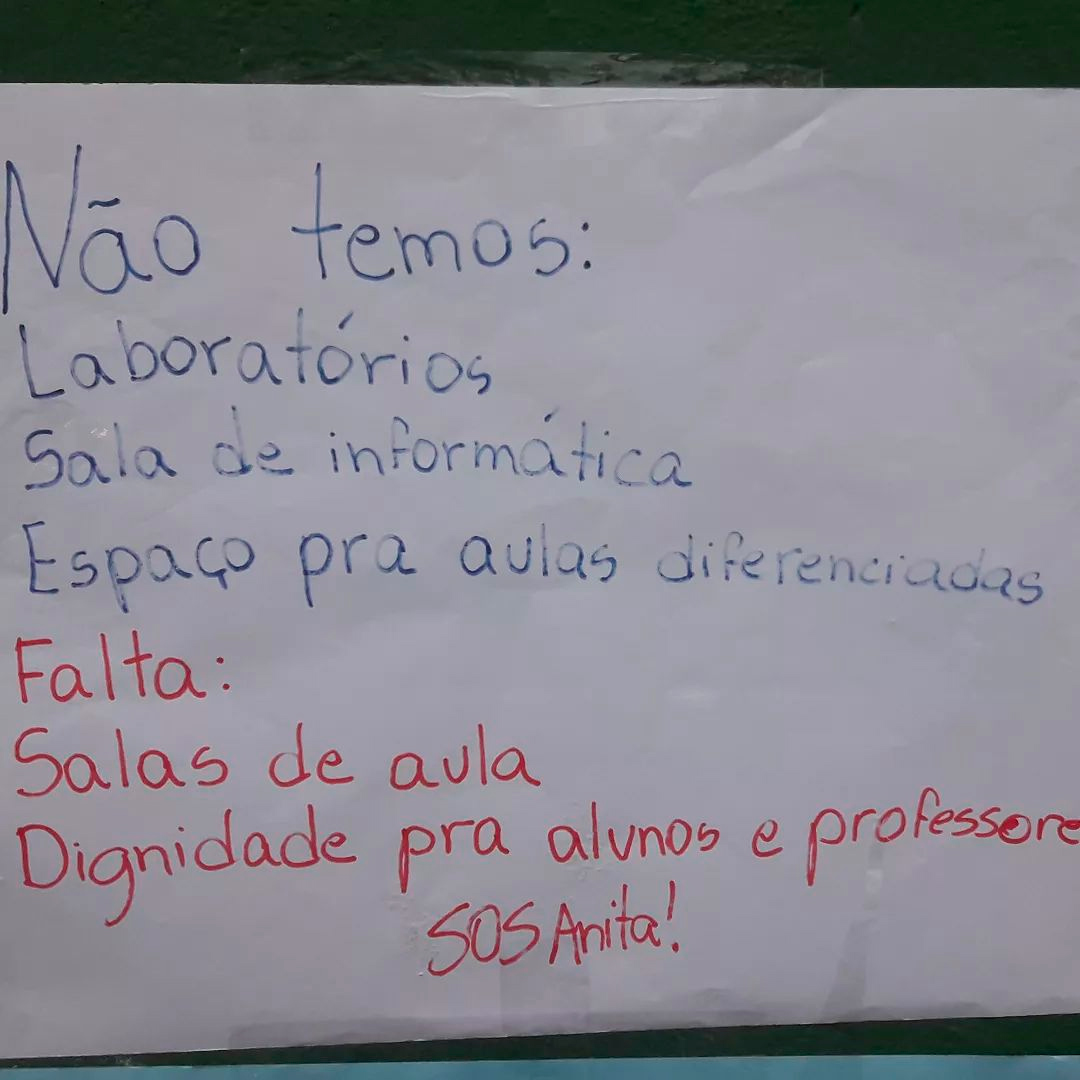 Não temos:
Laboratórios
Sala de informática
Espaço pra aulas diferenciadas
Falta:
Salas de aula
Dignidade pra alunos e professore
SOS Anita!